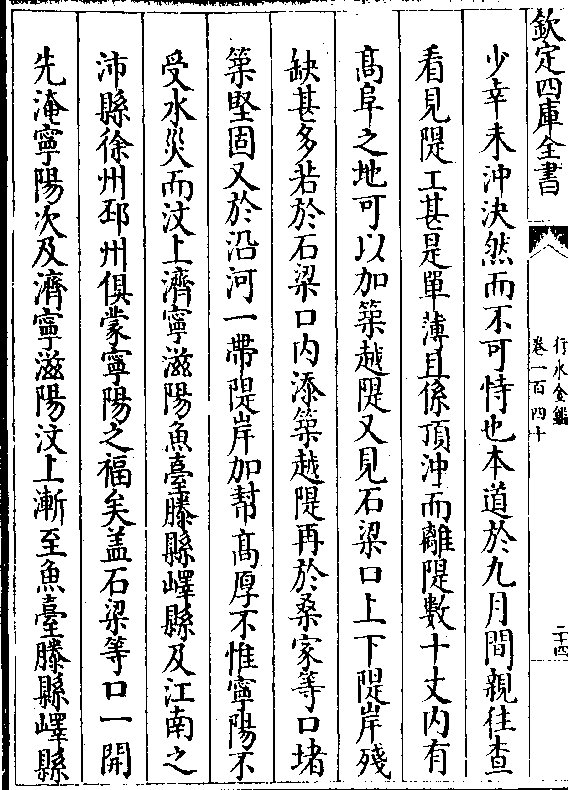 欽定四庫全書
行水金鑑
卷一百四十
二十四
少幸未沖決然而不可恃也本道於九月間親往查
看見隄工甚是單薄且係頂沖而離隄數十丈内有
髙阜之地可以加築越隄又見石梁口上下隄岸殘
缺甚多若於石梁口内添築越隄再於桑家等口堵
築堅固又於沿河一帶隄岸加幫髙厚不惟寧陽不
受水災而汶上濟寧滋陽魚臺滕縣嶧縣及江南之
沛縣徐州邳州俱蒙寧陽之福矣盖石梁等口一開
先淹寧陽次及濟寧滋陽汶上漸至魚臺滕縣嶧縣